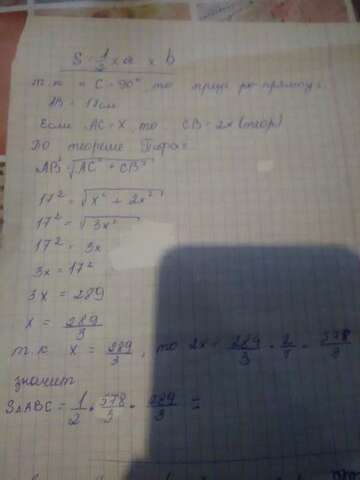 S = 1/2 × a × b
т.к C = 90°, то
AB = 17см
Если AC = X, то CB = 2x (теор)
По теореме Пифаг
AB² = √AC² + CB²
17² = √X² + 2x²
17² = √3x²
17² = 3x
3x = 17²
3x = 289
x = 289/3
т.к x = 289/3, то 2x = 289/3 · 2/1 = 578/3
значит
S△ABC = 1/2 · 578/3 · 289/3 =